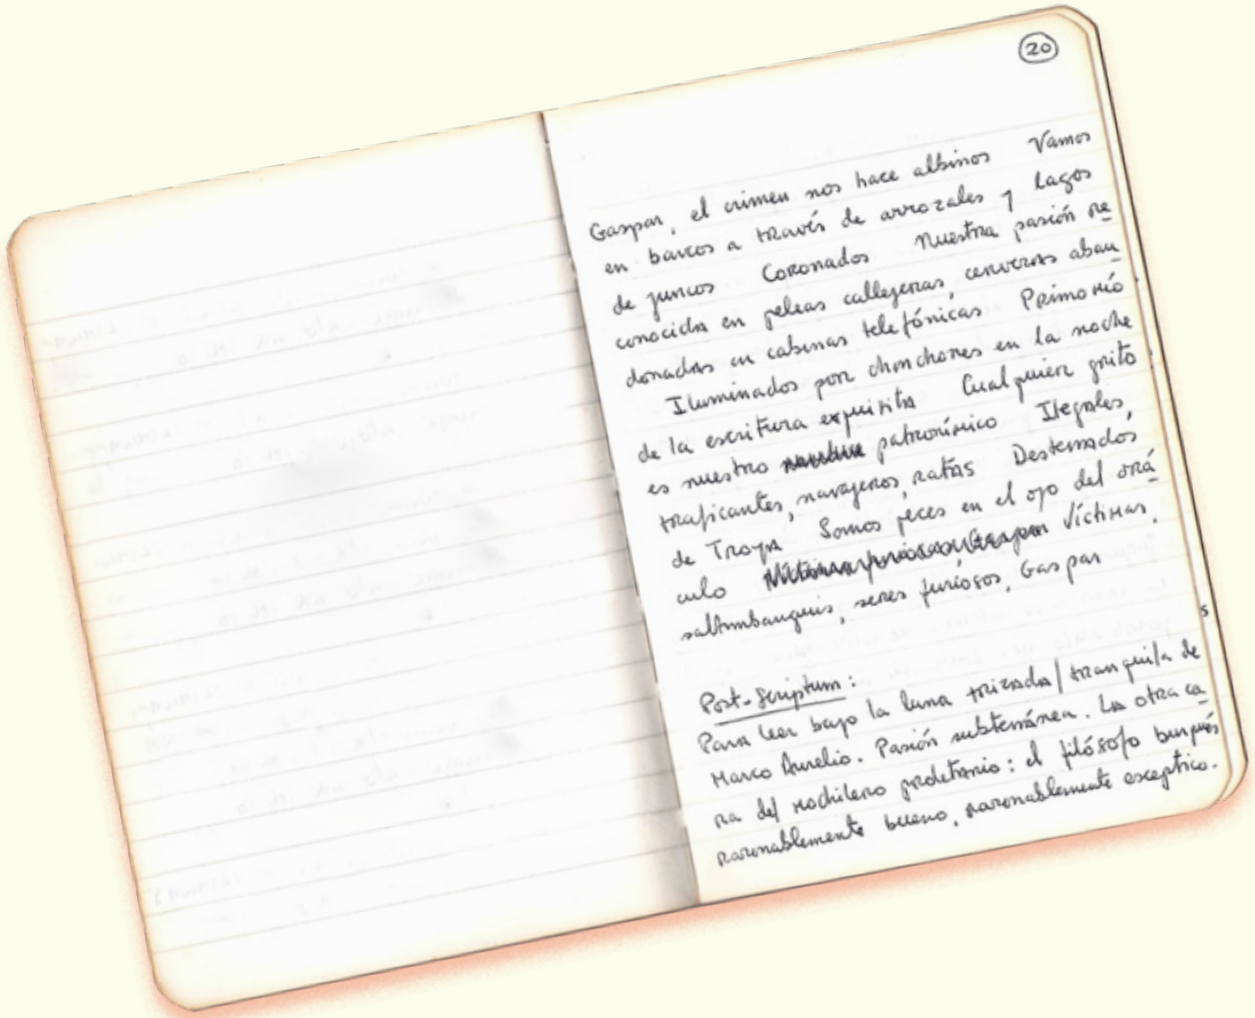 20
Gaspar, el crimen nos hace albinos Vamos
en barcos a través de arrozales y Lagos
de juncos Coronados Nuestra pasión re
conocida en peleas callejeras, cervezas aban
donadas en cabinas telefónicas Primo mío
Iluminados por chinchones en la noche
de la escritura exquisita Cualquier grito
es nuestro patronímico Ilegales,
traficantes, navajeros, ratas Desterrados
de Troya Somos peces en el ojo del orá
culo Víctimas,
saltimbanquis, seres furiosos, Gaspar
Post-Scriptum:
Para leer bajo la luna trizada/tranquila de
Marco Aurelio. Pasión subterránea. La otra ca
ra del mochilero proletario: el filósofo burgués
razonablemente bueno, razonablemente esceptico.